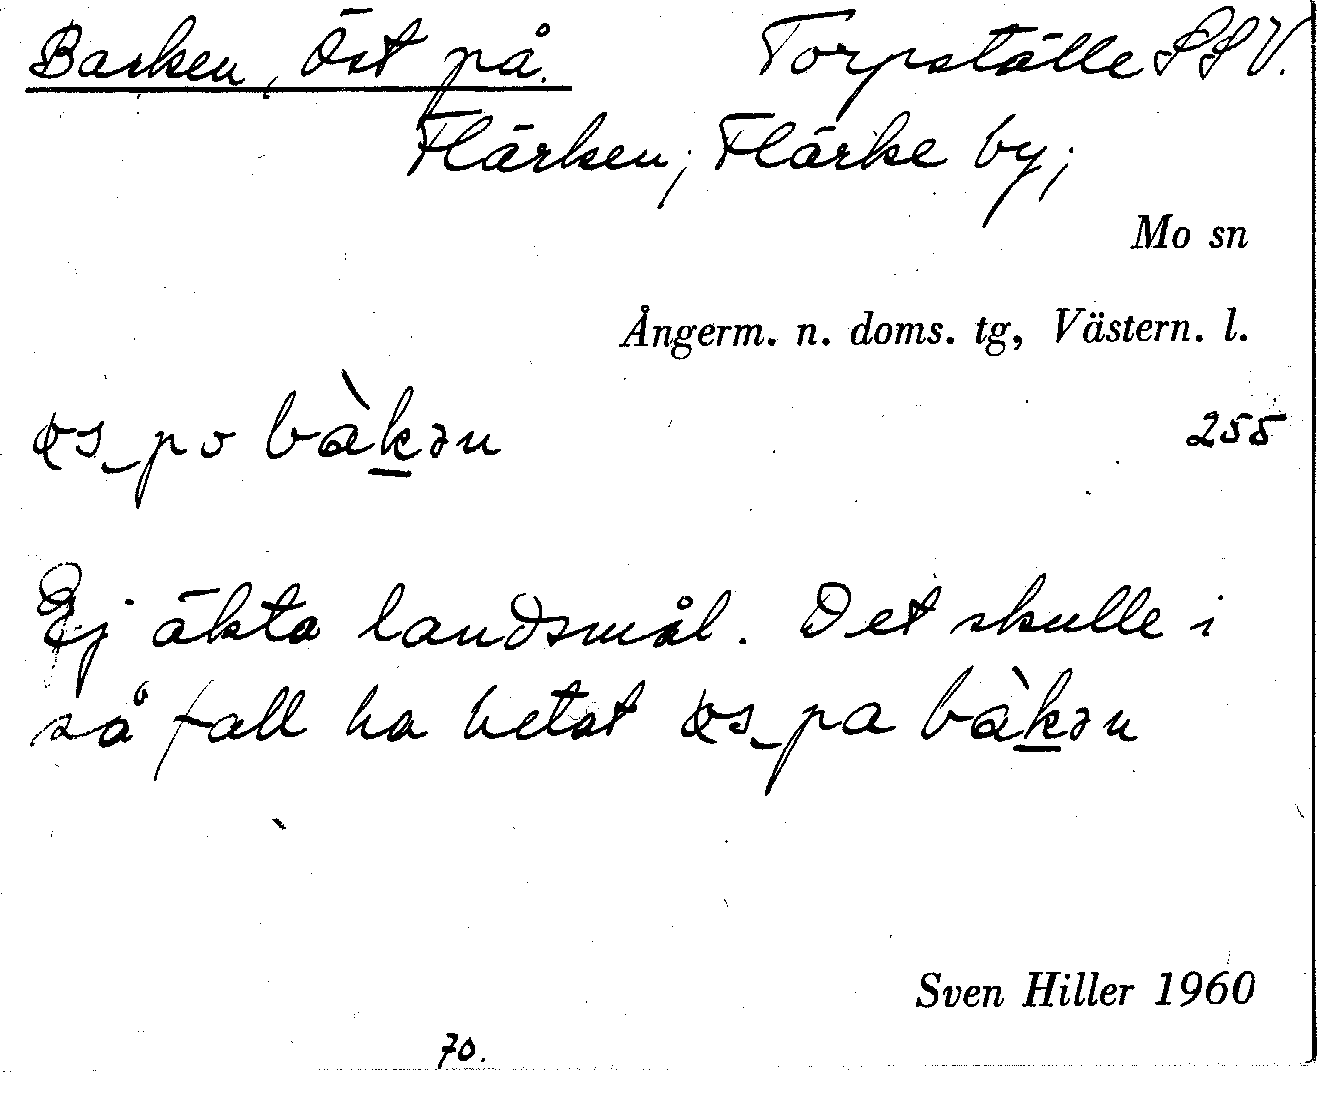 Backen, Öst på. Torpställe SSV.
Flärken; Flärke by;
Mo sn
Ångerm. n. doms. tg, Västern. l.
po bàk̲ən 255
Ej äkta landsmål. Det skulle i
så fall ha hetat pa bàk̲ən
Sven Hiller 1960
70.